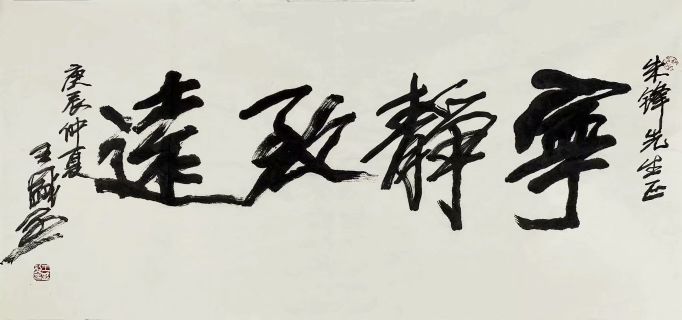 朱鋒先生正
寧靜致遠
庚辰仲夏
王